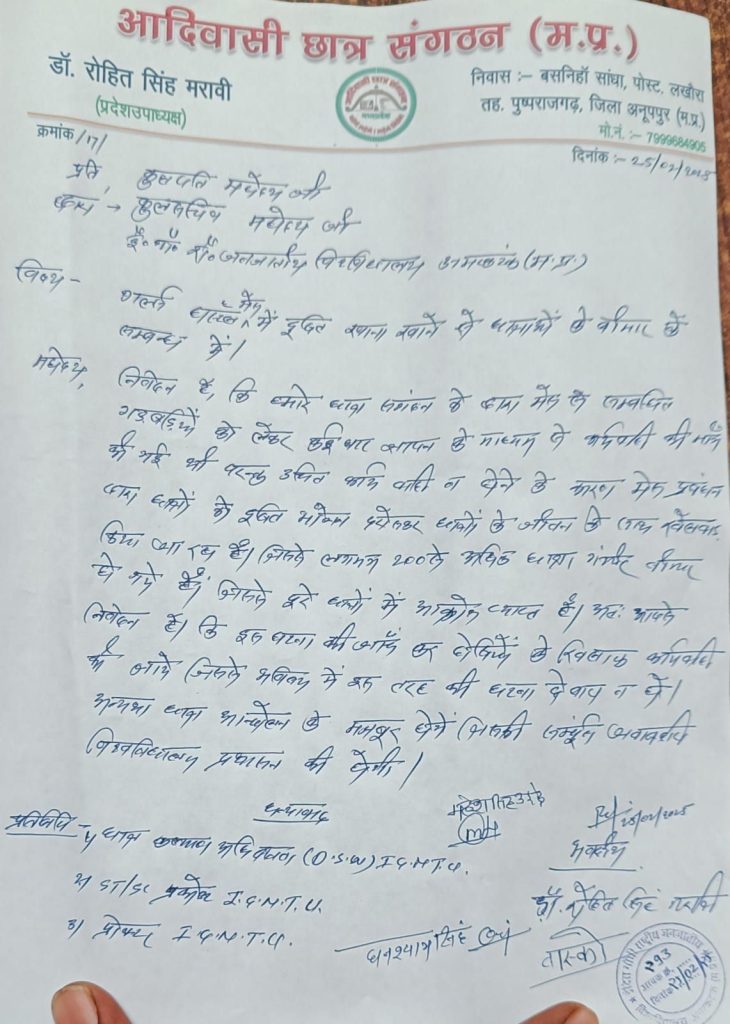 आदिवासी छात्र संगठन (म.प्र.)
डॉ. रोहित सिंह मरावी
(प्रदेशउपाध्यक्ष)
निवास :– बसनिहाँ सांधा, पोस्ट. लखौरा
तह. पुष्पराजगढ़, जिला अनूपपुर (म.प्र.)
मो.नं. :– 7999684905
क्रमांक/17/
दिनांक :– 25/02/2025
प्रति, कुलपति महोदय जी
द्वारा → कुलसचिव महोदय जी
इ० गाँ० रा० जनजातीय विश्वविद्यालय अमरकंटक (म.प्र.)
विषय –
गर्ल्स मेस में दूषित खाना खाने से छात्राओं के बीमार
सम्बन्ध में।
महोदय,
निवेदन है, कि हमारे छात्र संगठन के द्वारा मेस के सम्बंधित
गड़बड़ियों को लेकर कई बार ज्ञापन के माध्यम से कार्यवाही की माँग
की गई थी परन्तु उचित कार्यवाही न होने के कारण मेस प्रबंधन
द्वारा छात्रों को दूषित भोजन छात्रों के जीवन के साथ खेलवाड़
किया जा रहा है। जिससे लगभग 200 से अधिक छात्रा गंभीर बीमार
हो गये हैं, जिससे पूरे छात्रों में आक्रोश व्याप्त है। अतः आपसे
निवेदन है। कि इस घटना की जाँच कर दोषियों के खिलाफ कार्यवाही
की जाये जिससे भविष्य में इस तरह की घटना दोबारा न हो।
अन्यथा छात्र आन्दोलन के मजबूर होंगे जिसकी सम्पूर्ण जवाबदारी
विश्वविद्यालय प्रशासन की होगी।
धन्यवाद
प्रतिलिपि – 1) छात्र कल्याण अधिष्ठाता (D.S.W) I.G.N.T.U.
2) ST/SC प्रकोष्ठ I.G.N.T.U.
3) प्रोक्टर I.G.N.T.U.
25/02/2025
भवदीय
डॉ. रोहित सिंह मरावी
घनश्याम सिंह
293